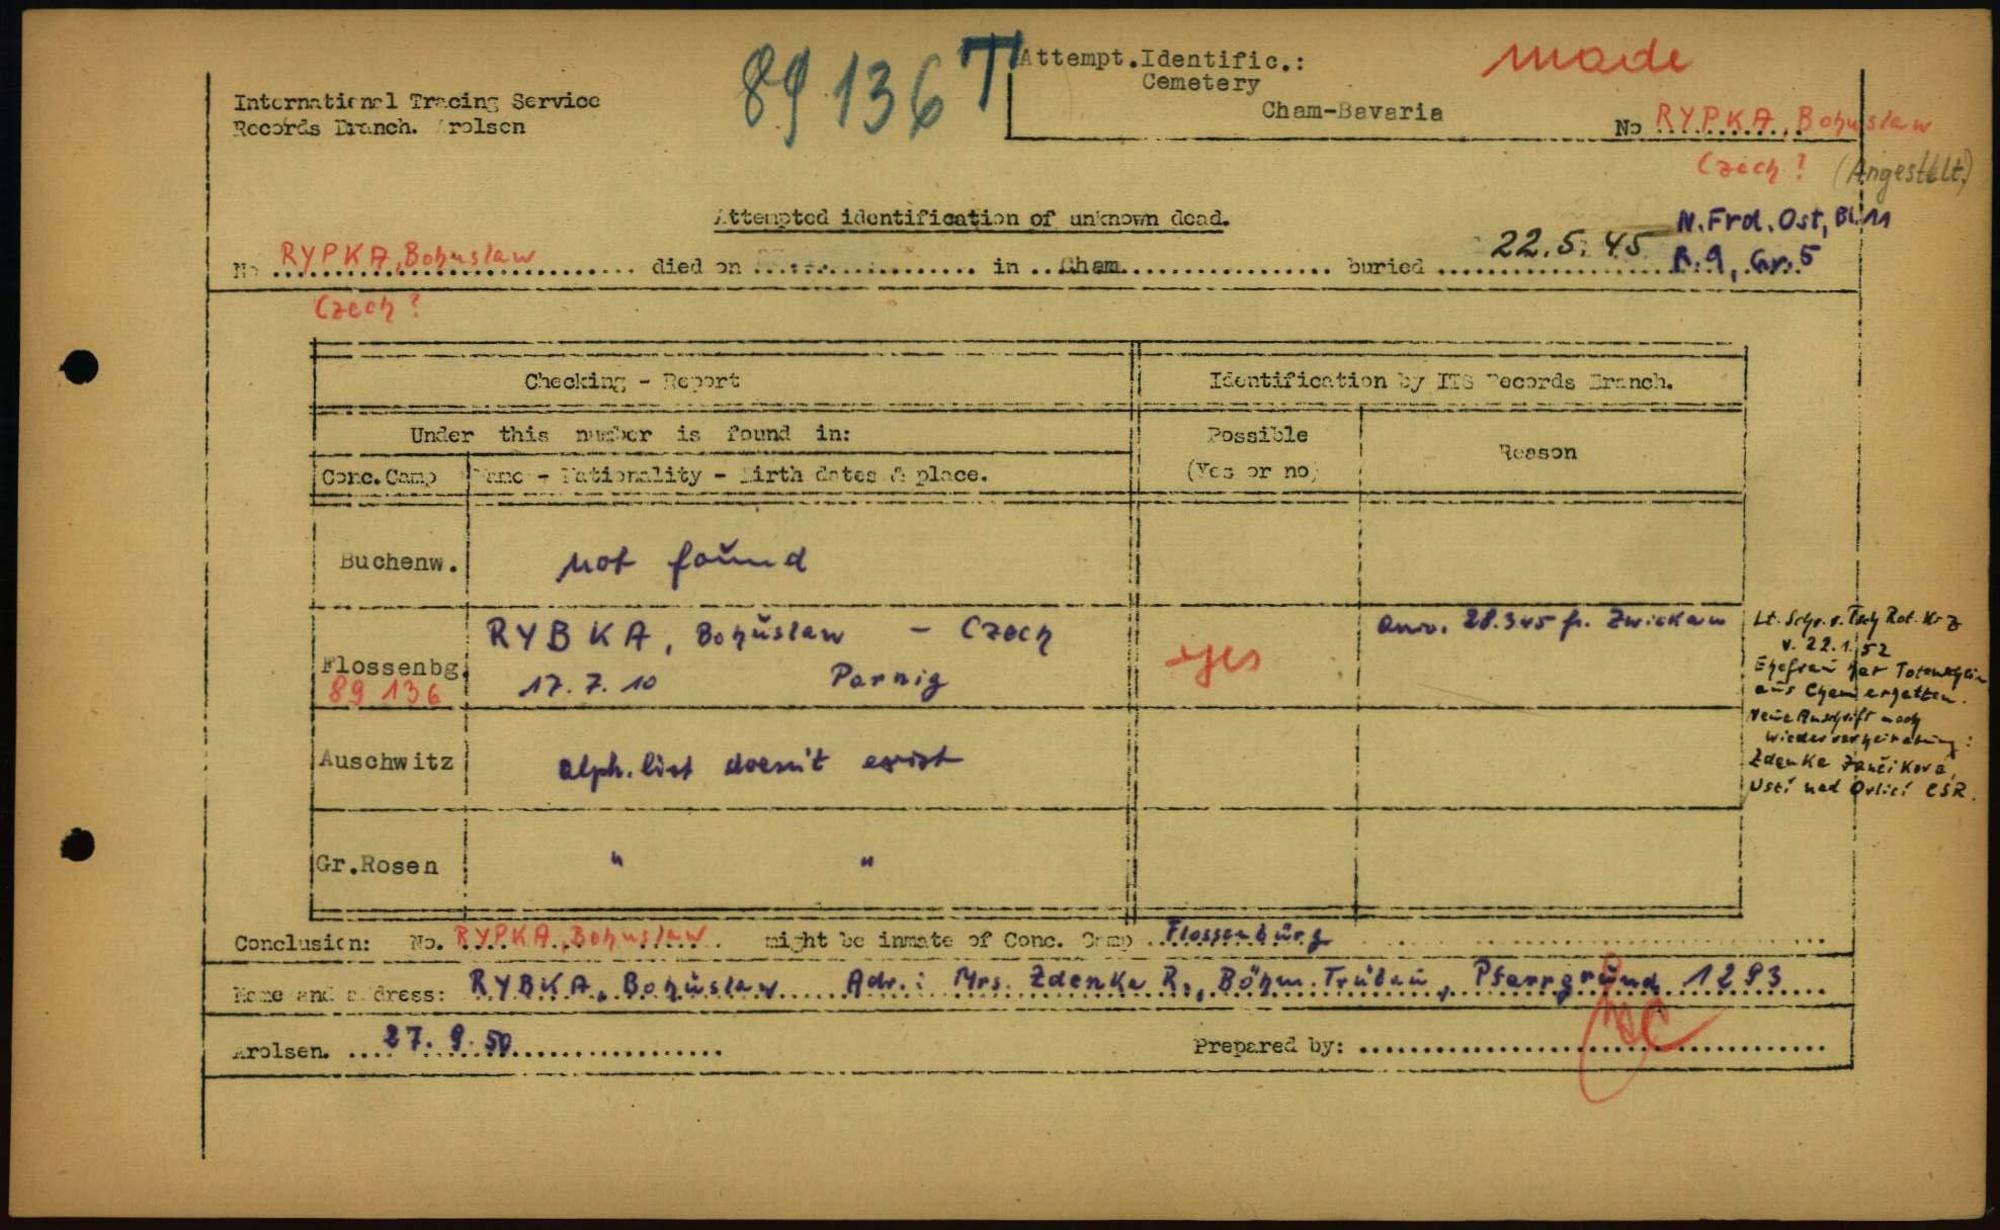 89 136 T
Attempt.Identific.:
made
Cemetery
International Tracing Service
Cham-Bavaria
Records Branch. Arolsen
No RYPKA, Bohuslaw
Czech ? (Angestellt.)
Attempted identification of unknown dead.
N. Frd. Ost, Bl. 11
No RYPKA, Bohuslaw died on in Cham buried 22.5.45 R. 9, Gr. 5
Czech ?
Checking - Report
Identification by ITS Records Branch.
Under this number is found in:
Possible
(Yes or no)
Reason
Conc.Camp
Name - Nationality - Birth dates & place.
Buchenw.
not found
Flossenbg.
89 136
RYBKA, Bohuslaw - Czech
17. 7. 10 Parnig
yes
28.3.45 fr. Zwickau
Lt. Schr. v. Tsch. Rot. Krz
v. 22.1.52
Ehefrau hat Totenschein
aus Cham erhalten.
Neue Anschrift nach
Wiederverheiratung:
Zdenka Jančikova,
Ustí nad Orlicí ČSR.
Auschwitz
alph. list doesn't exist
Gr.Rosen
" "
Conclusion: No. RYPKA, Bohuslaw might be inmate of Conc. Camp Flossenbürg
Name and address: RYBKA, Bohuslaw Adr.: Mrs. Zdenka R., Böhm. Trübau, Pfarrgrund 1293
Arolsen. 27. 9. 50
Prepared by: